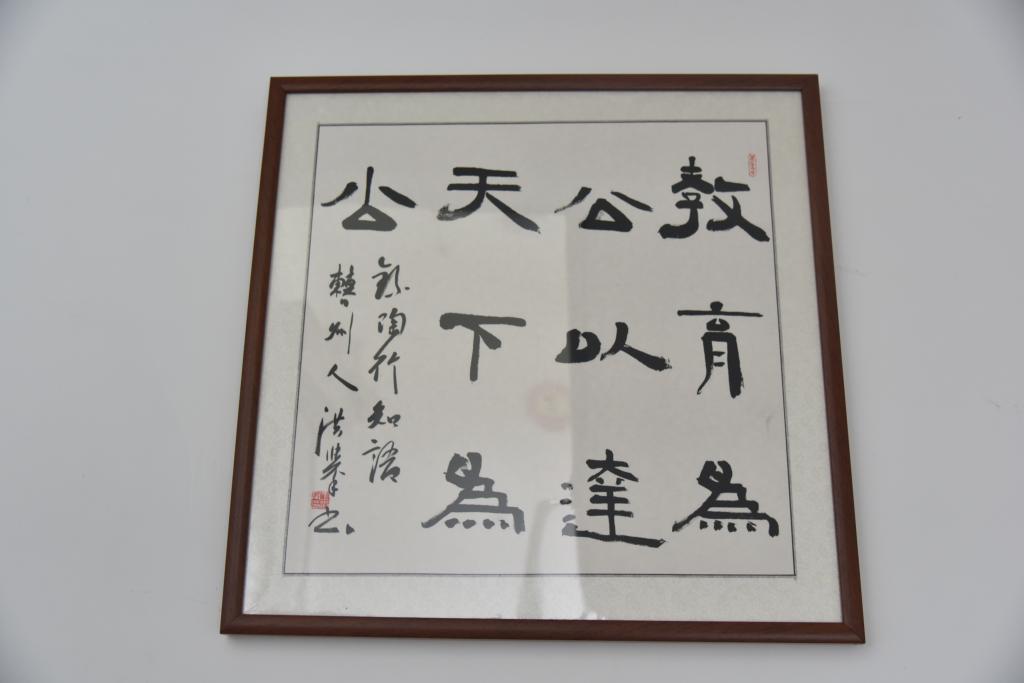 教育為
公以達
天下為
公
錄陶行知語
贛州人洪樂書